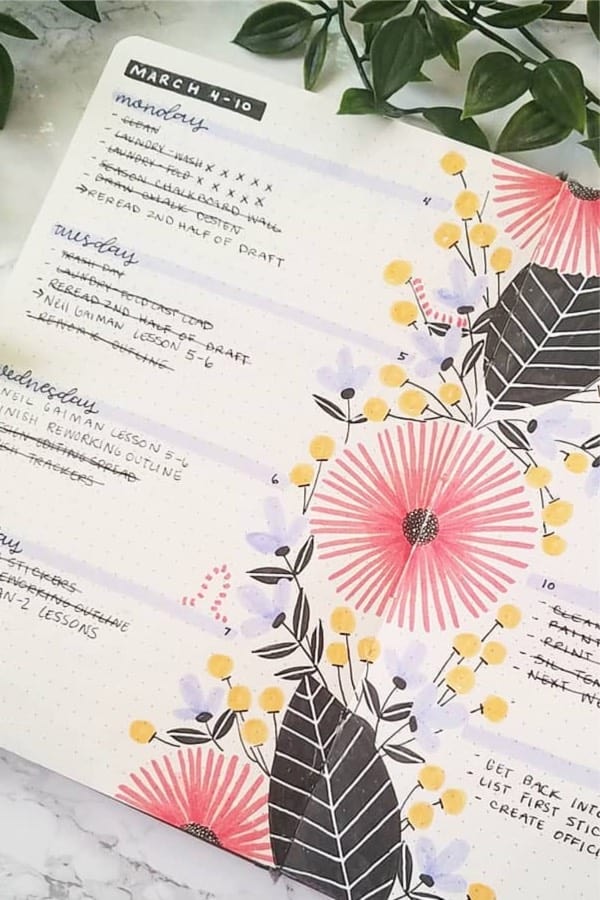 MARCH 4-10
monday
4
- CLEAN
- LAUNDRY-WASH x x x x x
- LAUNDRY-FOLD x x x x x
- SEASON CHALKBOARD WALL
- DRAW CHALK DESIGN
→REREAD 2ND HALF OF DRAFT
tuesday
5
- TRASH DAY
- LAUNDRY-FOLD LAST LOAD
- REREAD 2ND HALF OF DRAFT
→NEIL GAIMAN LESSON 5-6
- REWORK OUTLINE
wednesday
6
NEIL GAIMAN LESSON 5-6
INISH REWORKING OUTLINE
EDITING SPREAD
TRACKERS
day
7
STICKERS
EWORKING OUTLINE
AN-2 LESSONS
10
- CLEAN
- PAINT
- PRINT
- NEXT W
- GET BACK INTO
- LIST FIRST STIC
- CREATE OFFICI